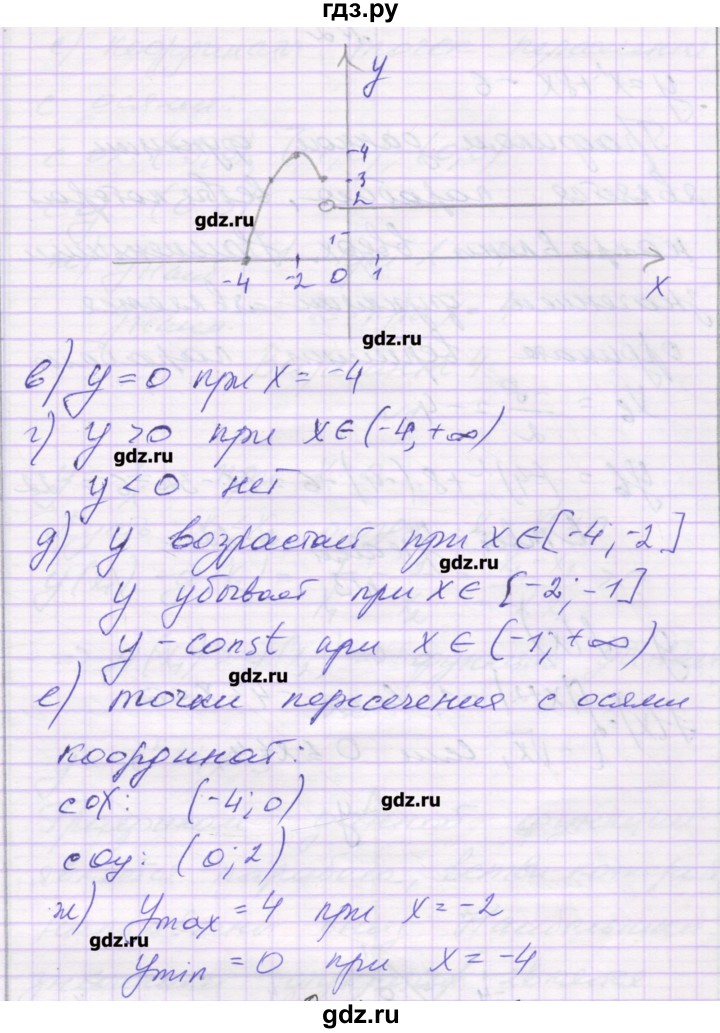 гдз.ру
y
4
3
gdz.ru
2
1
-4
-2
0
1
x
gdz.ru
в) y = 0 при x = -4
г) y > 0 при x ∈ (-4; +∞)
gdz.ru
y < 0 нет
д) y возрастает при x ∈ [-4; -2]
gdz.ru
y убывает при x ∈ [-2; -1]
y - const при x ∈ (-1; +∞)
gdz.ru
е) точки пересечения с осями
координат:
gdz.ru
с ox: (-4; 0)
с oy: (0; 2)
ж) y max = 4 при x = -2
gdz.ru
y min = 0 при x = -4
gdz.ru